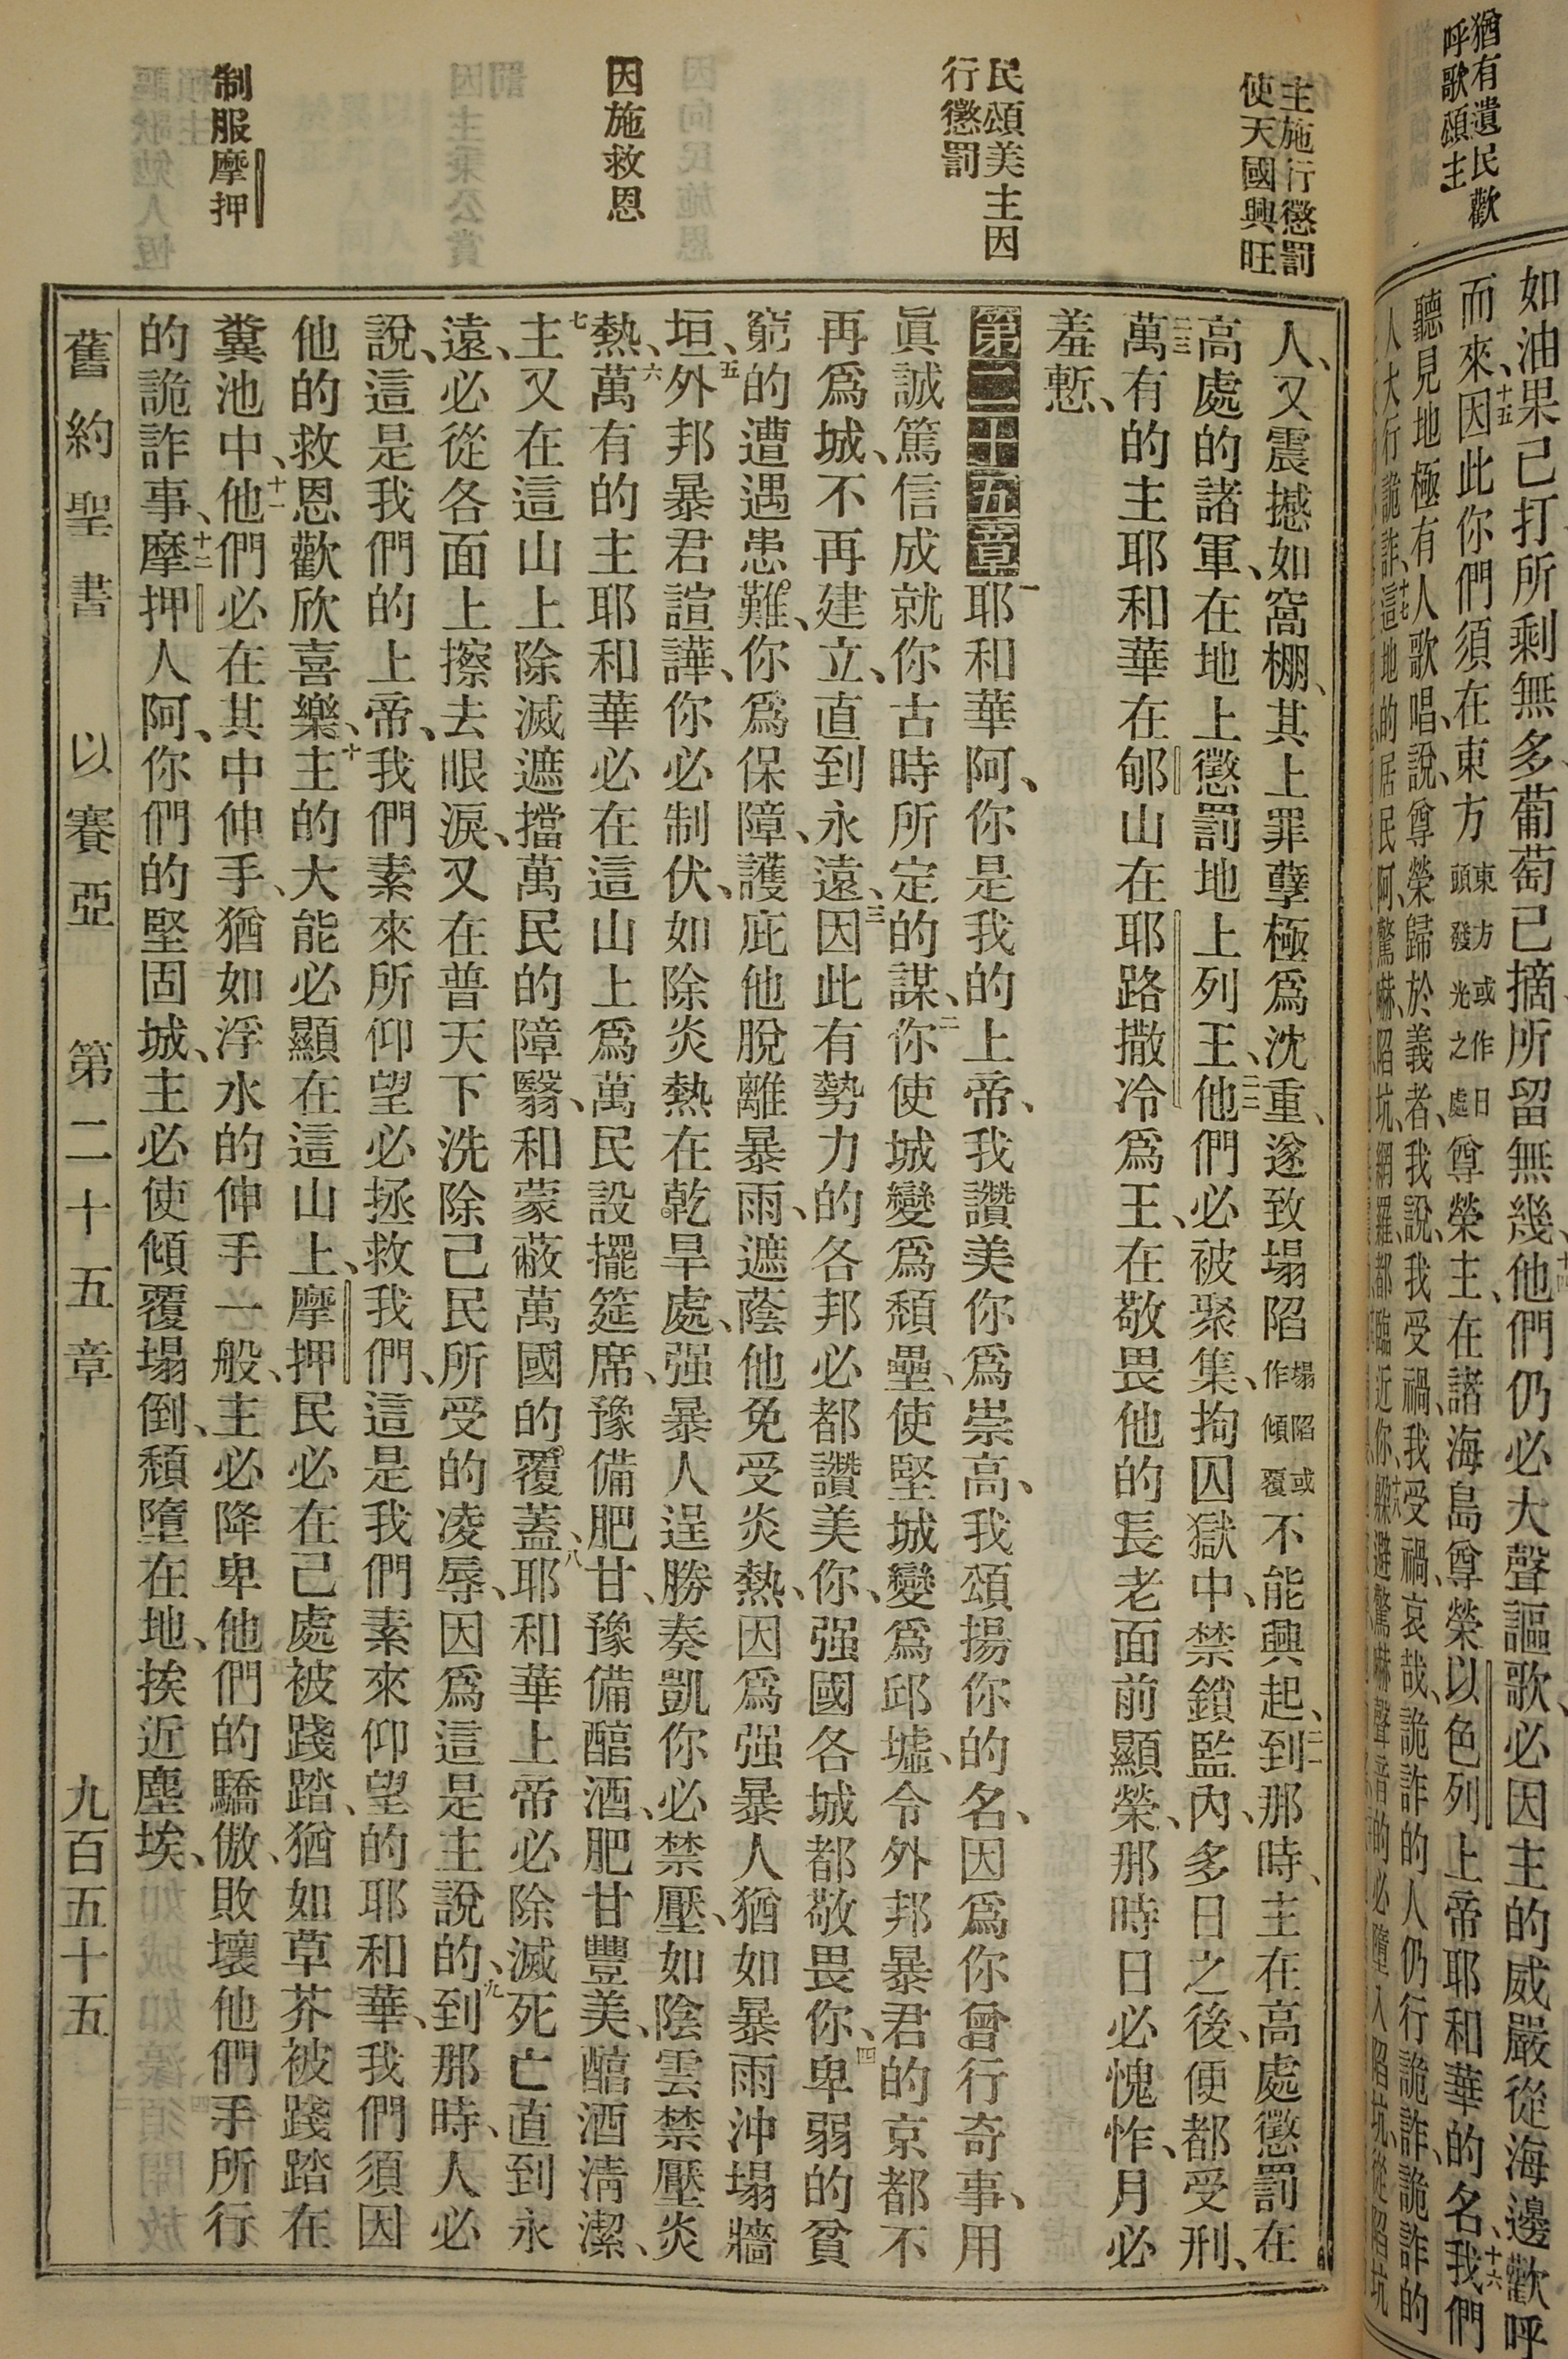 猶有遺民歡
呼歌頌主
如油果已打所剩無多葡萄已摘所留無幾、十四他們仍必大聲謳歌、必因主的威嚴從海邊歡呼
而來、十五因此你們須在東方東方或作日頭發光之處尊榮主、在諸海島尊榮以色列上帝耶和華的名、十六我們
聽見地極有人歌唱、說、尊榮歸於義者、我說、我受禍、我受禍、哀哉、詭詐的人仍行詭詐、詭詐的
人大行詭詐、十七這地的居民阿、驚嚇、陷坑、網羅、都臨近你、十八躲避驚嚇聲音的必墮入陷坑、從陷坑
主施行懲罰
使天國興旺
民頌美主因
行懲罰
因施救恩
制服摩押
人、又震撼如窩棚、其上罪孽極爲沈重、遂致塌陷塌陷或作傾覆不能興起、二一到那時、主在高處懲罰在
高處的諸軍、在地上懲罰地上列王、二二他們必被聚集、拘囚獄中、禁鎖監內、多日之後、便都受刑、
二三萬有的主耶和華在郇山在耶路撒冷爲王、在敬畏他的長老面前顯榮、那時日必愧怍、月必
羞慙、
第二十五章一耶和華阿、你是我的上帝、我讚美你爲崇高、我頌揚你的名、因爲你曾行奇事、用
眞誠篤信成就你古時所定的謀、二你使城變爲頹壘、使堅城變爲邱墟、令外邦暴君的京都不
再爲城、不再建立、直到永遠、三因此有勢力的各邦必都讚美你、强國各城都敬畏你、四卑弱的貧
窮的遭遇患難、你爲保障、護庇他脫離暴雨、遮蔭他免受炎熱、因爲强暴人猶如暴雨沖塌牆
垣、五外邦暴君諠譁、你必制伏、如除炎熱在乾旱處、强暴人逞勝奏凱你必禁壓、如陰雲禁壓炎
熱、六萬有的主耶和華必在這山上爲萬民設擺筵席、豫備肥甘、豫備醅酒、肥甘豐美、醅酒淸潔、
七主又在這山上除滅遮擋萬民的障翳、和蒙蔽萬國的覆蓋、八耶和華上帝必除滅死亡直到永
遠、必從各面上擦去眼淚、又在普天下洗除己民所受的凌辱、因爲這是主說的、九到那時、人必
說、這是我們的上帝、我們素來所仰望必拯救我們、這是我們素來仰望的耶和華、我們須因
他的救恩歡欣喜樂、十主的大能必顯在這山上、摩押民必在己處被踐踏、猶如草芥被踐踏在
糞池中、十一他們必在其中伸手、猶如浮水的伸手一般、主必降卑他們的驕傲、敗壞他們手所行
的詭詐事、十二摩押人阿、你們的堅固城、主必使傾覆塌倒、頹墮在地、挨近塵埃、
舊約聖書 以賽亞 第二十五章 九百五十五